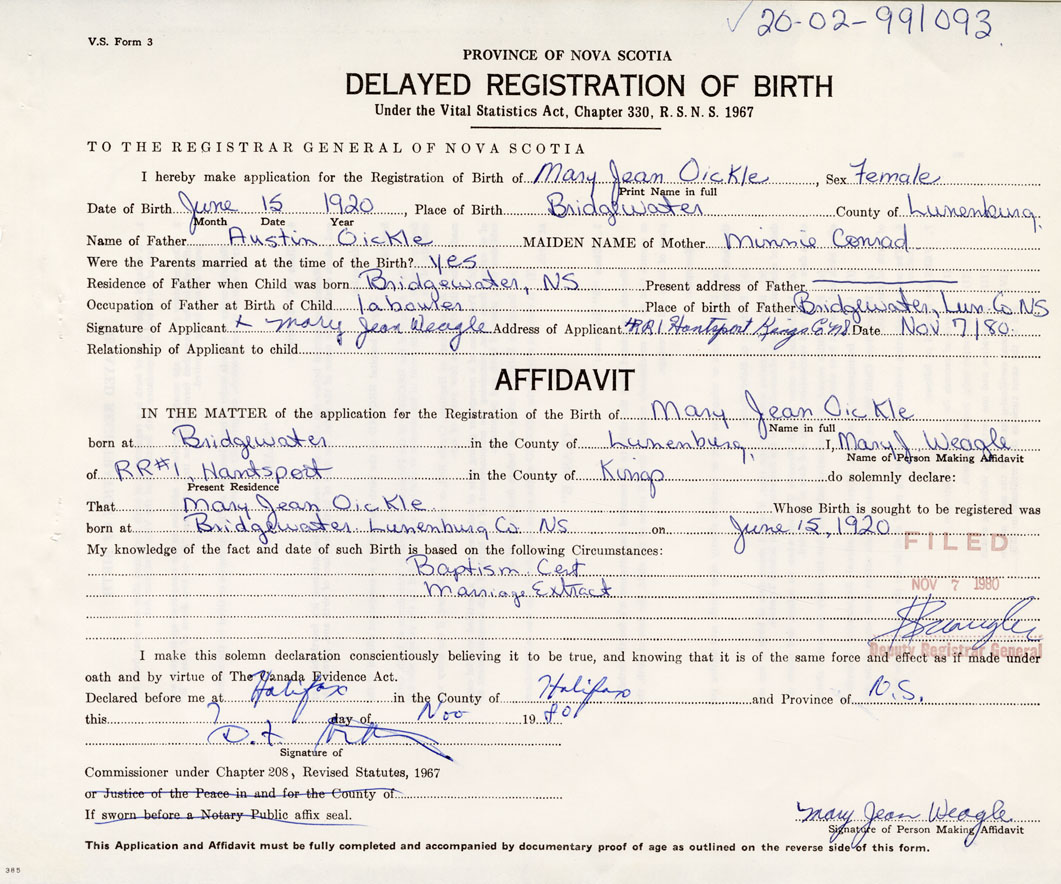 ✓ 20-02-991093
V.S. Form 3
PROVINCE OF NOVA SCOTIA
DELAYED REGISTRATION OF BIRTH
Under the Vital Statistics Act, Chapter 330, R. S. N. S. 1967
TO THE REGISTRAR GENERAL OF NOVA SCOTIA
I hereby make application for the Registration of Birth of Mary Jean Oickle, Sex Female
Print Name in full
Date of Birth June 15 1920, Place of Birth Bridgewater County of Lunenburg.
Month Date Year
Name of Father Austin Oickle MAIDEN NAME of Mother Minnie Conrad
Were the Parents married at the time of the Birth? Yes
Residence of Father when Child was born Bridgewater, NS Present address of Father
Occupation of Father at Birth of Child labourer Place of birth of Father Bridgewater, Lun. Co. NS
Signature of Applicant x Mary Jean Weagle Address of Applicant RR1 Hantsport Kings Co. NS Date Nov 7/80.
Relationship of Applicant to child
AFFIDAVIT
IN THE MATTER of the application for the Registration of the Birth of Mary Jean Oickle
Name in full
born at Bridgewater in the County of Lunenburg, I, Mary J. Weagle
Name of Person Making Affidavit
of RR#1, Hantsport in the County of Kings do solemnly declare:
Present Residence
That Mary Jean Oickle Whose Birth is sought to be registered was
born at Bridgewater Lunenburg Co. NS on June 15, 1920
My knowledge of the fact and date of such Birth is based on the following Circumstances:
FILED
Baptism Cert
NOV 7 1980
Marriage Extract
Deputy Registrar General
I make this solemn declaration conscientiously believing it to be true, and knowing that it is of the same force and effect as if made under
oath and by virtue of The Canada Evidence Act.
Declared before me at Halifax in the County of Halifax and Province of N.S.
this 7 day of Nov 19 80
D. F.
Signature of
Commissioner under Chapter 208, Revised Statutes, 1967
or Justice of the Peace in and for the County of
If sworn before a Notary Public affix seal.
Mary Jean Weagle
Signature of Person Making Affidavit
This Application and Affidavit must be fully completed and accompanied by documentary proof of age as outlined on the reverse side of this form.
385